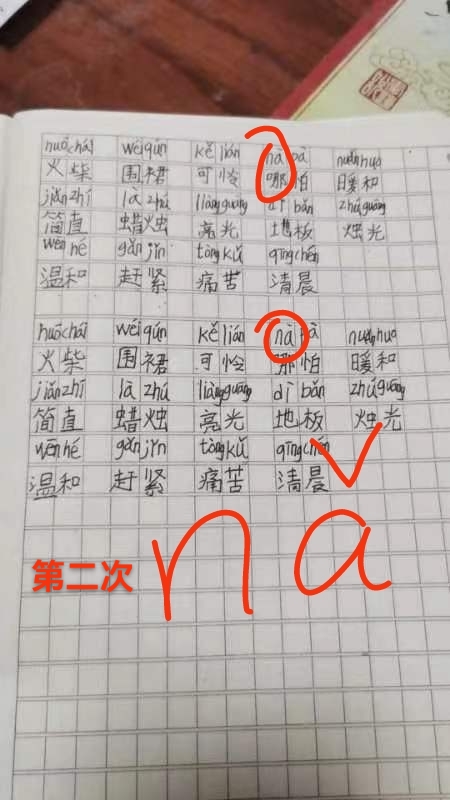 huǒchái wéiqún kělián nà pà nuǎnhuo
火柴 围裙 可怜 哪怕 暖和
jiǎnzhí là zhú liàngguāng dì bǎn zhúguāng
简直 蜡烛 亮光 地板 烛光
wēn hé gǎn jǐn tòng kǔ qīngchén
温和 赶紧 痛苦 清晨
huǒchái wéiqún kělián nà pà nuǎnhuo
火柴 围裙 可怜 哪怕 暖和
jiǎnzhí là zhú liàngguāng dì bǎn zhúguāng
简直 蜡烛 亮光 地板 烛光
wēnhé gǎnjǐn tòngkǔ qīngchén
温和 赶紧 痛苦 清晨
第二次 nǎ